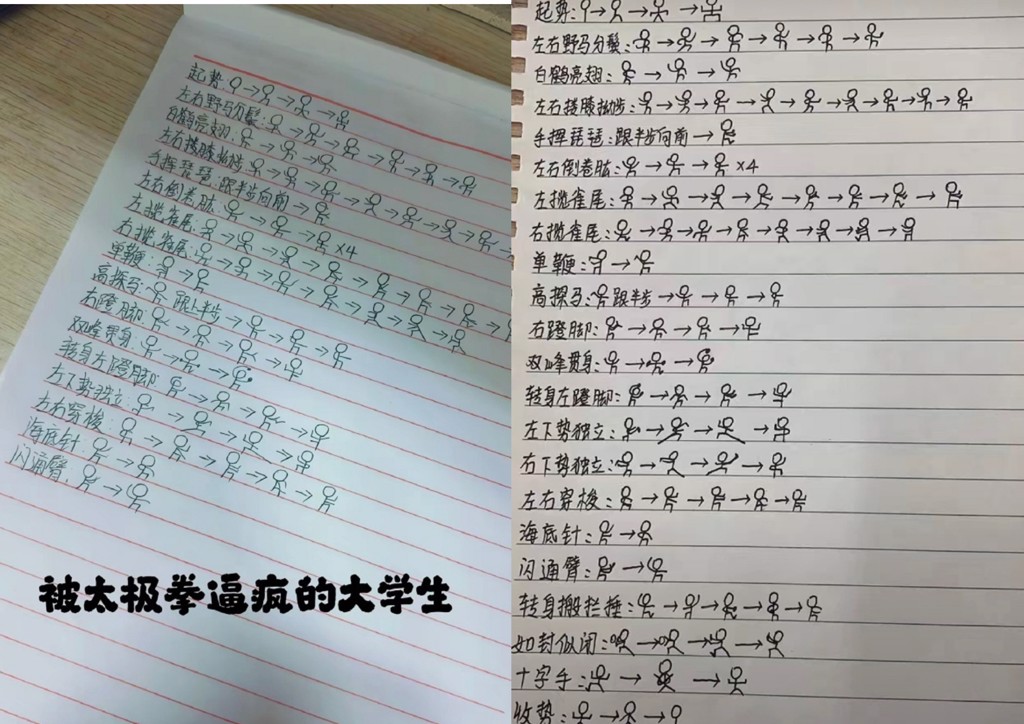 起势:
左右野马分鬃:
白鹤亮翅:
左右搂膝拗步:
手挥琵琶:跟半步向前→
左右倒卷肱: ×4
左揽雀尾:
右揽雀尾:
单鞭:
高探马: 跟上半步→
右蹬脚:
双峰贯身:
转身左蹬脚:
左下势独立:
左右穿梭:
海底针:
闪通臂:
被太极拳逼疯的大学生
起势:
左右野马分鬃:
白鹤亮翅:
左右搂膝拗步:
手挥琵琶:跟半步向前→
左右倒卷肱: ×4
左揽雀尾:
右揽雀尾:
单鞭:
高探马: 跟半步→
右蹬脚:
双峰贯身:
转身左蹬脚:
左下势独立:
右下势独立:
左右穿梭:
海底针:
闪通臂:
转身搬拦捶:
如封似闭:
十字手:
收势: